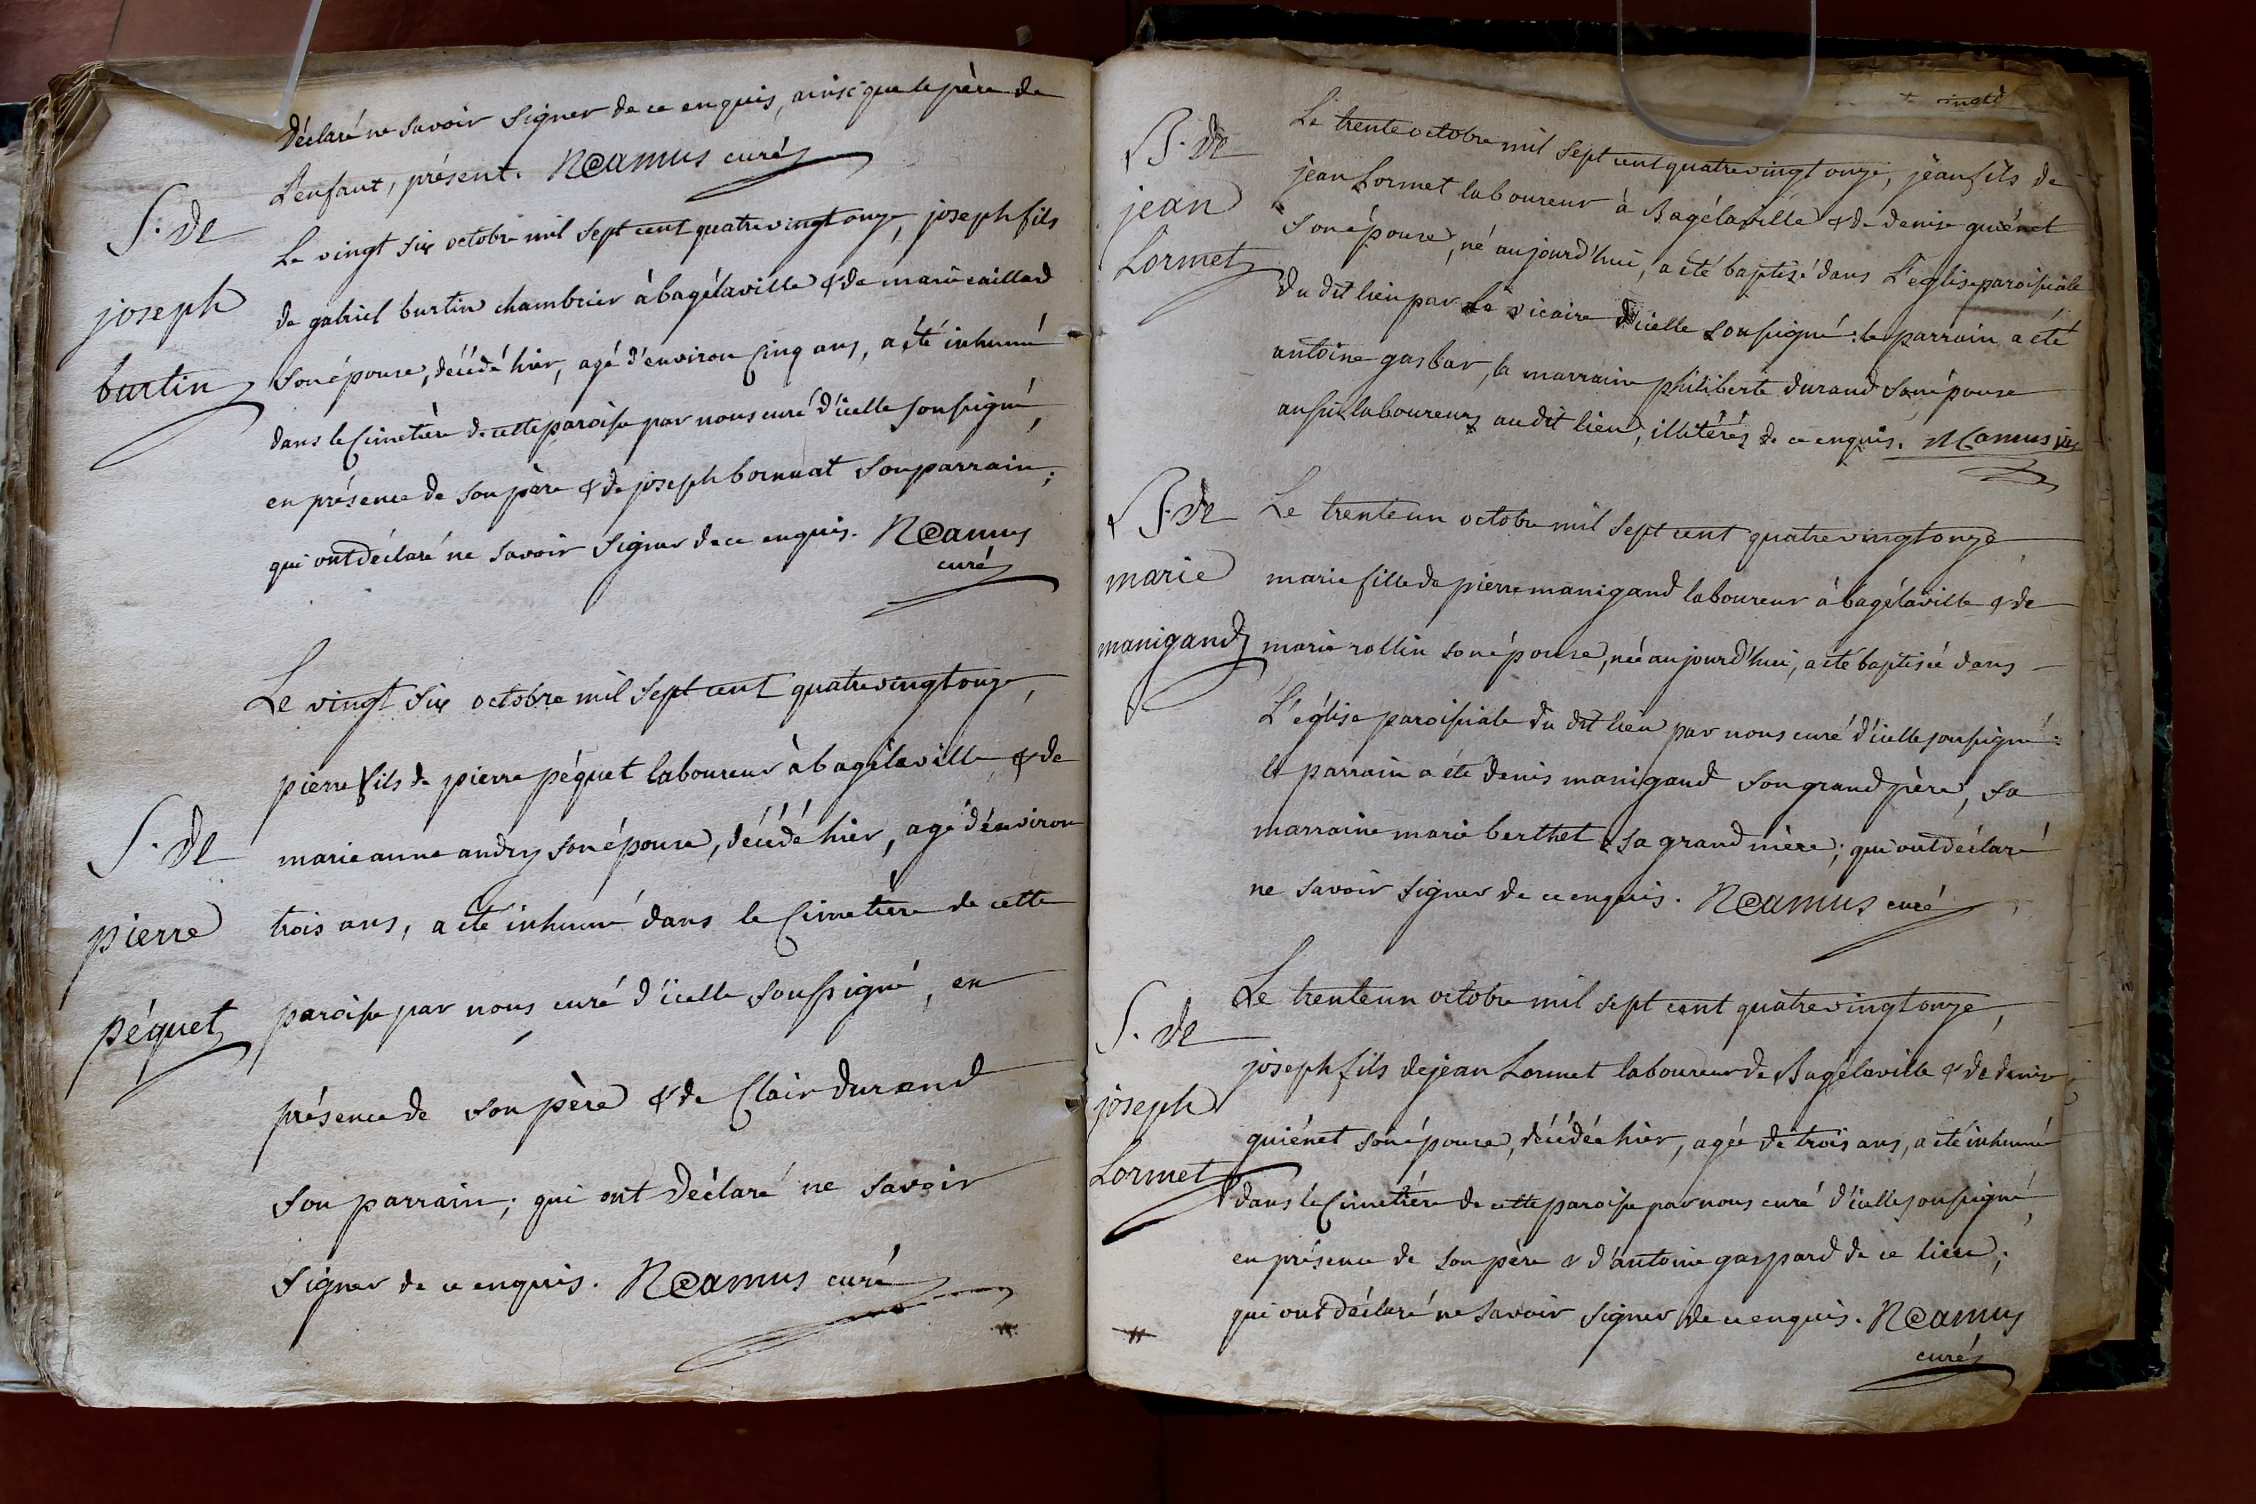 déclaré ne savoir signer de ce enquis, ainsi que le père de
L'enfant, présent. N Camus curé
S. de
joseph
burtin
Le vingt six octobre mil sept cent quatre vingt onze, joseph fils
de gabriel burtin chambrier à bagélaville & de marie caillard
son épouse, décédé hier, agé d'environ cinq ans, a été inhumé
dans le Cimetière de cette paroisse par nous curé d'icelle soussigné,
en présence de son père & de joseph bornuat son parrain;
qui ont déclaré ne savoir signer de ce enquis. N Camus
curé
S. de
pierre
péquet
Le vingt six octobre mil sept cent quatre vingt onze,
pierre fils de pierre péquet laboureur à bagélaville & de
marie anne andry son épouse, décédé hier, agé d'environ
trois ans, a été inhumé dans le Cimetière de cette
paroisse par nous curé d'icelle soussigné, en
présence de son père & de Clair durand
son parrain; qui ont déclaré ne savoir
signer de ce enquis. N Camus curé
B. de
jean
Lormet
Le trente octobre mil sept cent quatre vingt onze, jean fils de
jean Lormet laboureur à Bagélaville & de denise quiénet
son épouse, né aujourd'hui, a été baptisé dans L'église paroissiale
du dit lieu par le vicaire d'icelle soussigné: le parrain a été
antoine gasbar, la marraine philiberte durand son épouse
aussi laboureurs au dit lieu, illitérés de ce enquis. M Camus vic
B. de
marie
manigand
Le trente un octobre mil sept cent quatre vingt onze
marie fille de pierre manigand laboureur à bagélaville & de
marie rollin son épouse, née aujourd'hui, a été baptisée dans
L'église paroissiale du dit lieu par nous curé d'icelle soussigné:
le parrain a été denis manigand son grand père, sa
marraine marie berthet sa grand mère; qui ont déclaré
ne savoir signer de ce enquis. N Camus curé
S. de
joseph
Lormet
Le trente un octobre mil sept cent quatre vingt onze,
joseph fils de jean Lormet laboureur de Bagélaville & de denise
quiénet son épouse, décédée hier, agée de trois ans, a été inhumé
dans le Cimetière de cette paroisse par nous curé d'icelle soussigné,
en présence de son père & d'antoine gaspard de ce lieu;
qui ont déclaré ne savoir signer de ce enquis. N Camus
curé